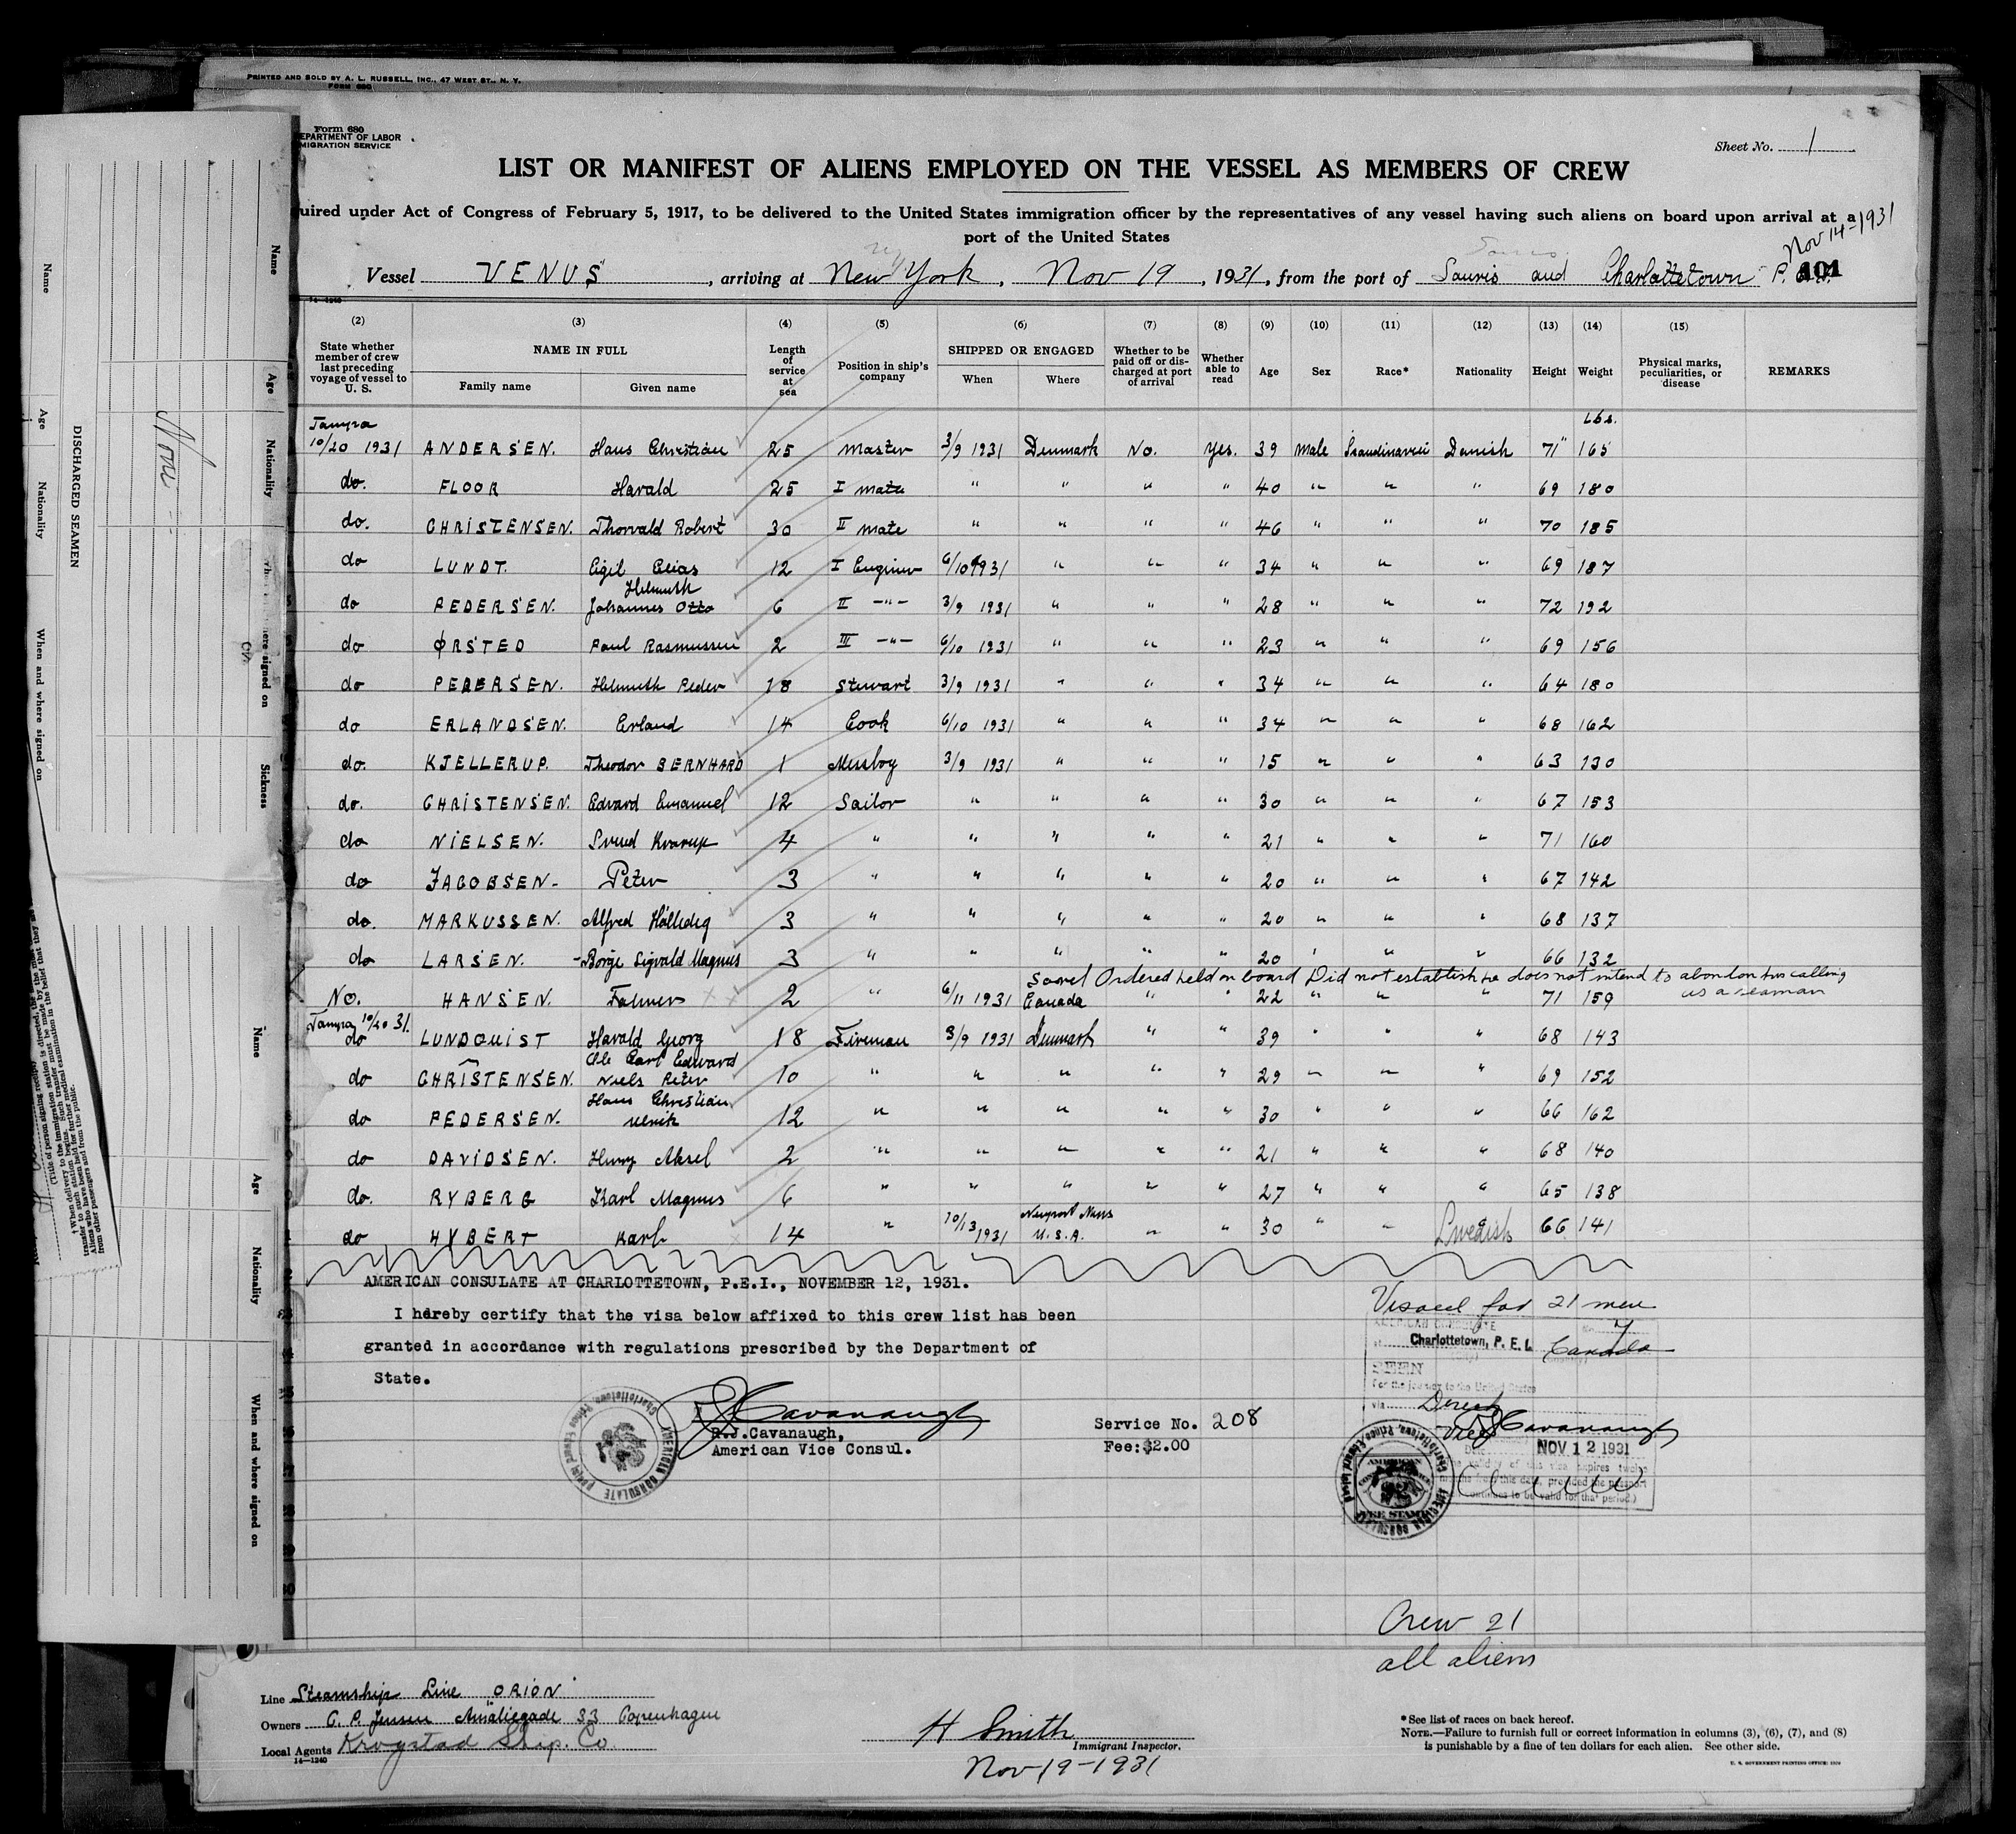 PRINTED AND SOLD BY A. L. RUSSELL, INC., 47 WEST ST., N. Y.
FORM 680
Form 680
EPARTMENT OF LABOR
MIGRATION SERVICE
Sheet No. 1
LIST OR MANIFEST OF ALIENS EMPLOYED ON THE VESSEL AS MEMBERS OF CREW
uired under Act of Congress of February 5, 1917, to be delivered to the United States immigration officer by the representatives of any vessel having such aliens on board upon arrival at a
port of the United States
Nov 14-1931
Vessel VENUS, arriving at New York, Nov 19, 1931, from the port of Souris and Charlottetown P.
101
14-1240
(2) (3) (4) (5) (6) (7) (8) (9) (10) (11) (12) (13) (14) (15)
State whether member of crew last preceding voyage of vessel to U. S.
NAME IN FULL
Family name Given name
Length of service at sea
Position in ship's company
SHIPPED OR ENGAGED
When Where
Whether to be paid off or discharged at port of arrival
Whether able to read
Age Sex Race* Nationality Height Weight
Physical marks, peculiarities, or disease
REMARKS
Lbs.
10/20 1931 ANDERSEN. Hans Christian 25 Master 3/9 1931 Denmark No. Yes. 39 Male Scandinavii Danish 71" 165
do. FLOOR Harald 25 I mate " " " " 40 " " " 69 180
do. CHRISTENSEN. Thorvald Robert 30 II mate " " " " 46 " " " 70 185
do LUNDT. Egil Elias 12 I Engineer 6/10 1931 " " " 34 " " " 69 187
Helmuth
do PEDERSEN. Johannes Otto 6 II -"- 3/9 1931 " " " 28 " " " 72 192
do ØRSTED Paul Rasmussen 2 III -"- 6/10 1931 " " " 23 " " " 69 156
do PEDERSEN. Helmuth Peder 18 Stewart 3/9 1931 " " " 34 " " " 64 180
do ERLANDSEN. Erland 14 Cook 6/10 1931 " " " 34 " " " 68 162
do. KJELLERUP. Theodor BERNHARD 1 Messboy 3/9 1931 " " " 15 " " " 63 130
do. CHRISTENSEN. Edvard Emanuel 12 Sailor " " " " 30 " " " 67 153
do NIELSEN. Svend Kvarup 4 " " " " " 21 " " " 71 160
do JACOBSEN- Peter 3 " " " " " 20 " " " 67 142
do. MARKUSSEN. Alfred 3 " " " " " 20 " " " 68 137
do LARSEN. Börge Sigvald Magnus 3 " " " " " 20 " " " 66 132
Ordered held on board Did not establish he does not intend to abandon his calling
as a seaman
No. HANSEN. Falmer 2 " 6/11 1931 Canada " " 22 " " " 71 159
10/20 31.
do LUNDQUIST Harald Georg 18 Fireman 3/9 1931 Denmark " " 39 " " " 68 143
Ole Carl Edward
do CHRISTENSEN. Niels Peter 10 " " " " " 29 " " " 69 152
Hans Christian
do PEDERSEN. Ulrik 12 " " " " " 30 " " " 66 162
do DAVIDSEN. Henry Aksel 2 " " " " " 21 " " " 68 140
do. RYBERG Karl Magnus 6 " " " " " 27 " " " 65 138
do HYBERT Karl 14 " 10/13 1931 Newport News U.S.A. " " 30 " " Swedish 66 141
AMERICAN CONSULATE AT CHARLOTTETOWN, P.E.I., NOVEMBER 12, 1931.
I hereby certify that the visa below affixed to this crew list has been
granted in accordance with regulations prescribed by the Department of
State.
Visaed for 21 men
AMERICAN CONSULATE
No. 7
Charlottetown, P. E. I. Canada
SEEN
For the journey to the United States
via Direct
RJ Cavanaugh
Vice
NOV 12 1931
RJ Cavanaugh
R.J.Cavanaugh,
American Vice Consul.
Service No. 208
Fee: $2.00
AMERICAN CONSULATE
Crew 21
all aliens
Line Steamship Line "ORION"
Owners C. P. Jensen Amaliegade 33 Copenhagen
Local Agents Krogstad Ship. Co.
14-1240
H Smith
Immigrant Inspector.
Nov-19-1931
*See list of races on back hereof.
NOTE.—Failure to furnish full or correct information in columns (3), (6), (7), and (8)
is punishable by a fine of ten dollars for each alien. See other side.
U. S. GOVERNMENT PRINTING OFFICE: 1929
DISCHARGED SEAMEN
Name Age Nationality When and where signed on
None
Name Age Nationality Sickness
Name Age Nationality When and where signed on